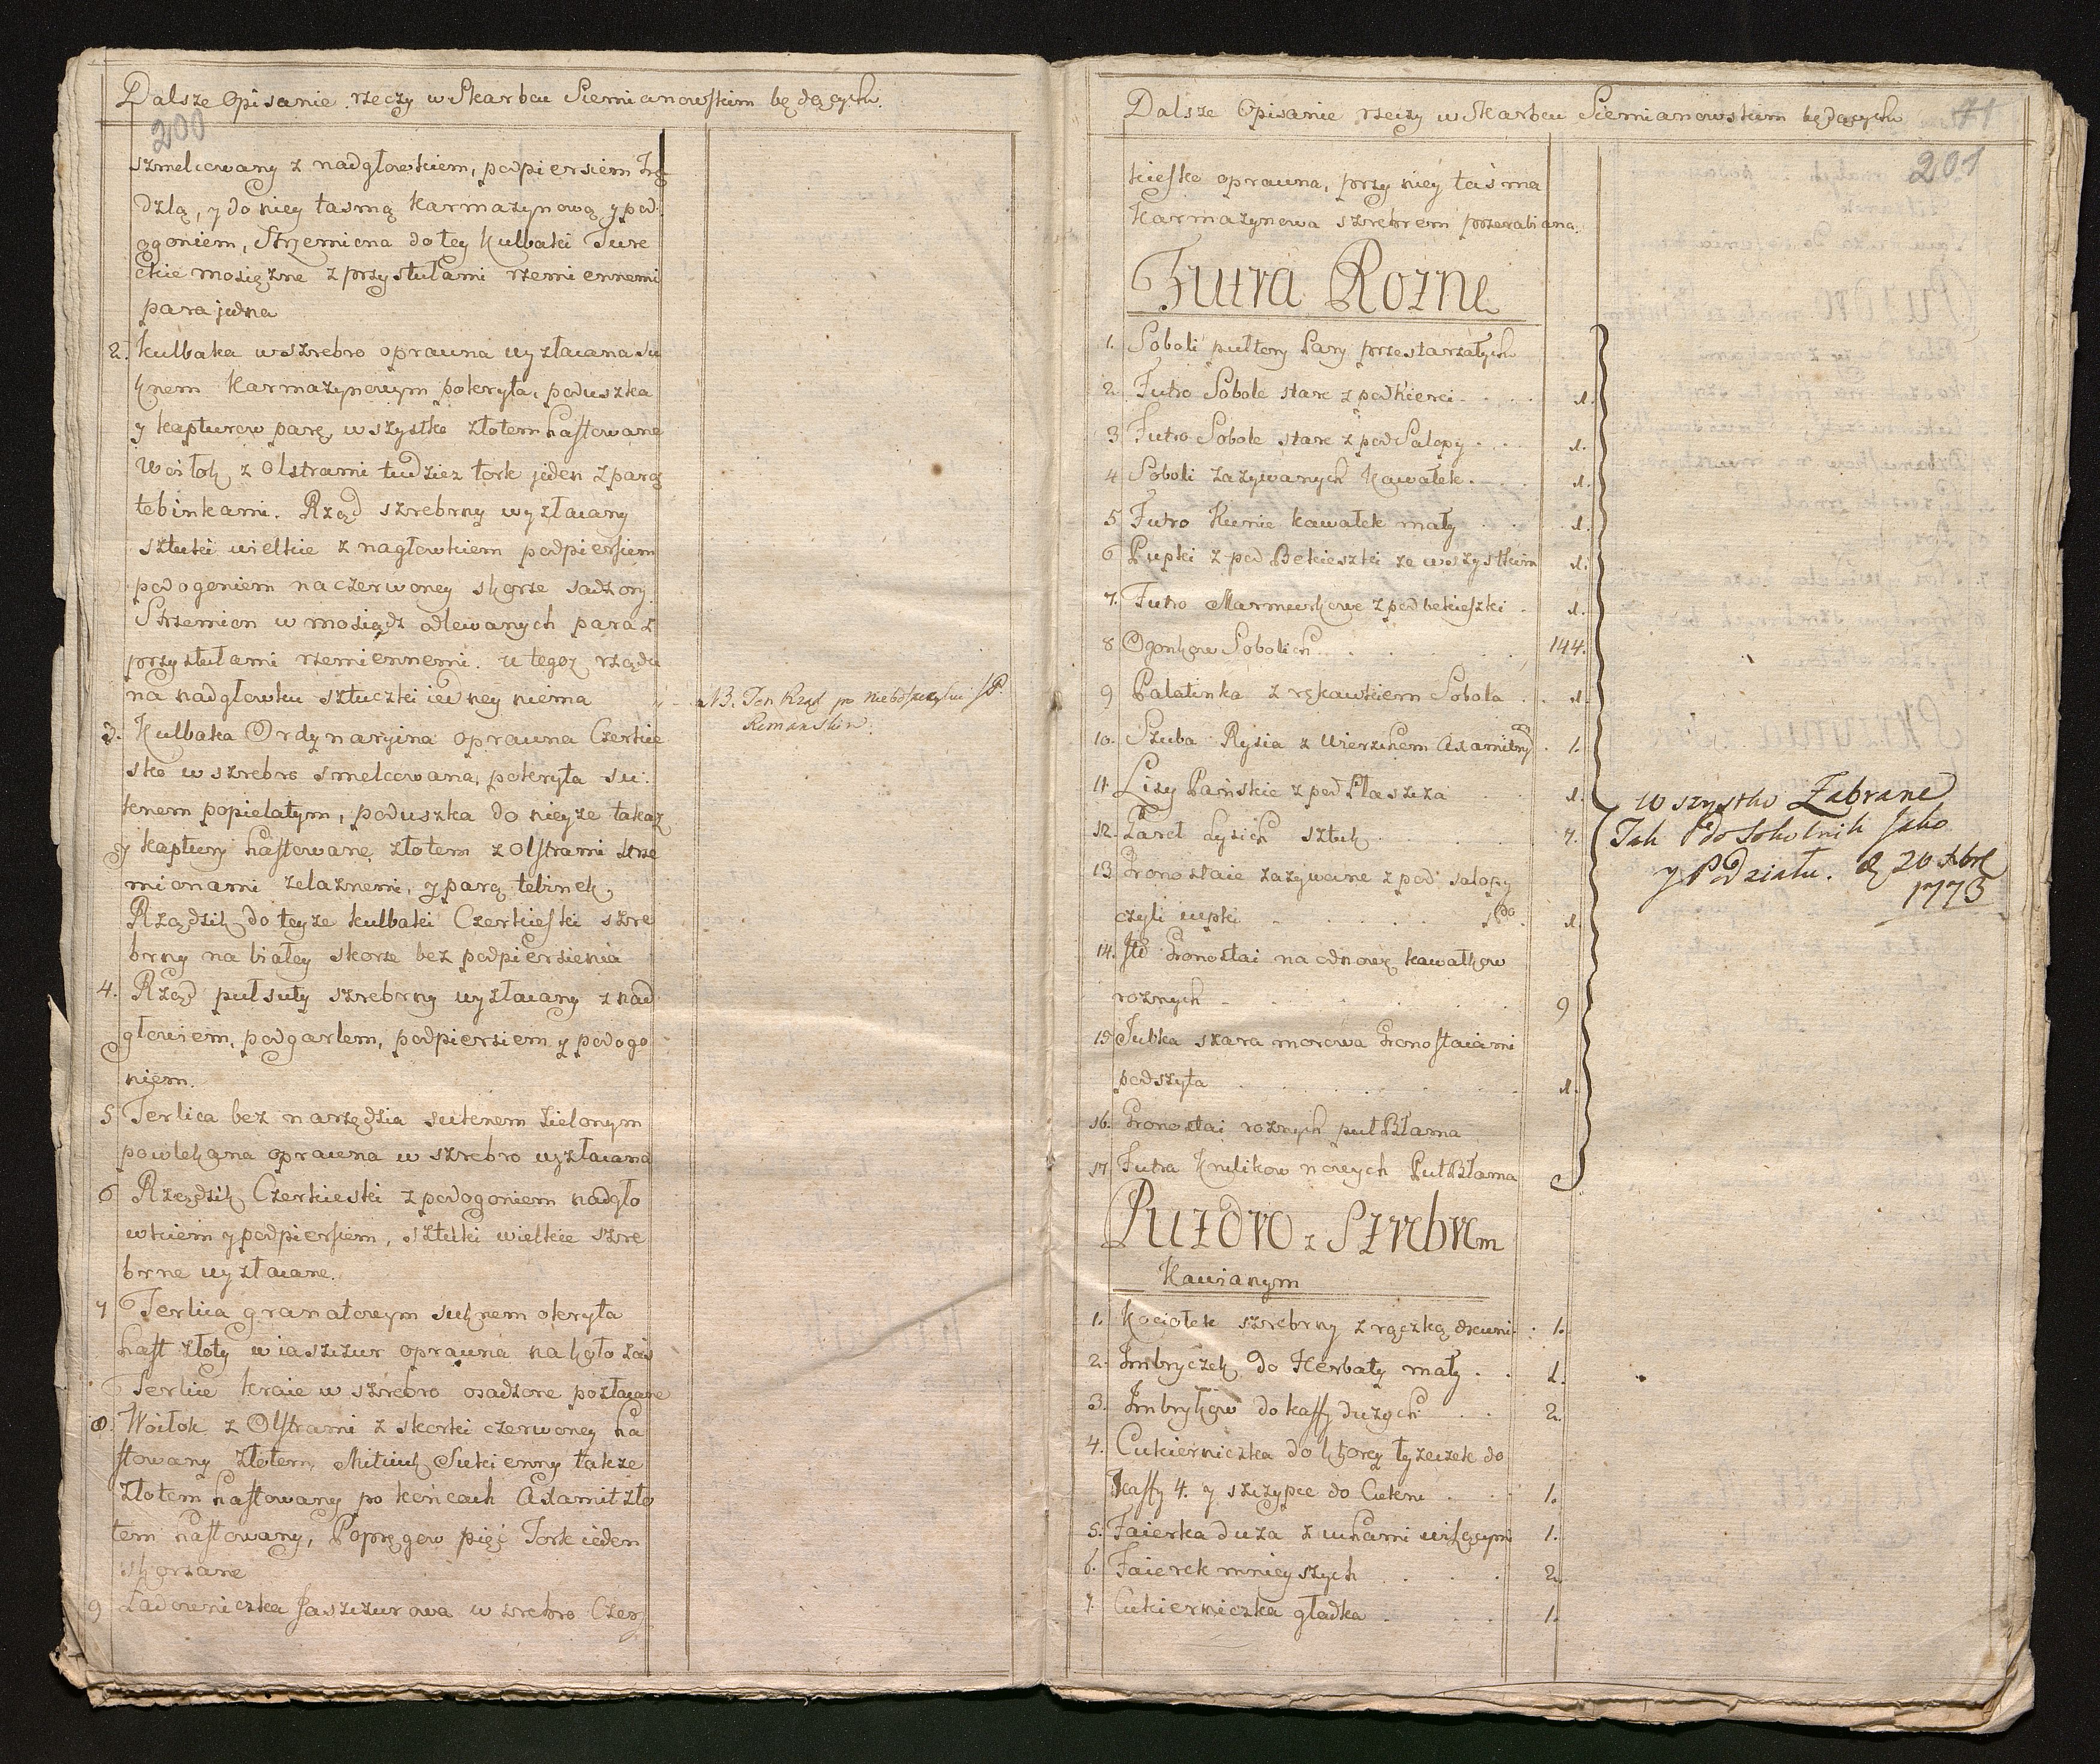 Dalsze Opisanie rzeczy w Skarbcu Siemianowskim będących.
200
szmelcowany z nadgłowkiem, podpiersiem Trę
dzlą, y do niey tasmą karmazynową y pod
ogoniem, Strzemiena do tey kulbaki Ture
ckie mosiężne z przystułami rzemiennemi
para jedna
2. Kulbaka w szrebro oprauna wyzłacana su
knem karmazynowym pokryta, poduszka
y kapturow parę, wszystko złotem haftowane
Woiłok z Olstrami tudziez tork jeden z parą
tebinkami. Rząd szrebrny wyzłacany
sztuki wielkie z nagłowkiem podpiersiem
podogoniem na czerwoney skorze sadzony.
Strzemion w mosiądz odlewanych para z
przystułami rzemiennemi. u tegoz rzędu
na nadgłowku sztuczki iedney niema
NB. Ten Rząd po
3. Kulbaka Ordynaryina oprauna Czerkie
sko w szrebro smelcowana, pokryta su:
knem popielatym, poduszka do nieyze takaz
y kaptury haftowane złotem z Olstrami strze
mionami zelaznemi, y parą tebinek,
Rządzik do teyze kulbaki Czerkieski szre
brny na białey skorze bez podpiersienia
4. Rząd pułsuty szrebrny wyzłacany z nad
głowiem, podgarlem, podpiersiem y podogo
niem.
5 Terlica bez narzędzia suknem zielonym
powlekana oprauna w szrebro wyzłacana
6 Rzędzik Czerkieski z podogoniem nadgło
wkiem y podpiersiem, sztuki wielkie szre
brne wyzłacane.
7 Terlica granatowym suknem okryta
haft złoty w iaszczur oprauna na koło zas
Terlice kraie w szrebro osadzone pozłacane
8. Woiłok z Olstrami z skorki czerwoney ha
ftowany złotem, Mituk Sukienny takze
złotem haftowany po końcach Axamit zło
tem haftowany, Popręgow pięć Tork ieden
skorzane
9 Ładowniczka Jaszczurowa w szrebro Czer
Dalsze Opisanie rzeczy w Skarbcu Siemianowskim będących
71
201
kiesko oprauna, przy niey tasma
Karmazynowa szrebrem przerabiana.
Futra Rozne
1. Soboli pułtory Pary przestarzałych
2. Futro Sobole stare z pod kierei 1.
3 Futro Sobole stare z pod Salopy 1.
4 Soboli zazywanych kawałek 1.
5 Futro Kunie kawałek mały 1.
6 Pupki z pod Bekieszki ze wszystkim 1.
7. Futro Marmurkowe z pod bekieszki 1.
8 Ogonkow Sobolich 144.
9 Palatinka z rękawkiem Sobola 1.
10. Szuba Rysia z Wierzchem Axamitnym 1.
11 Lizy Pańskie z pod Płaszcza 1.
12. Pareł Lysich sztuk 7.
13 Gronostaie zazywane z pod salopy
czyli iupki 1.
14. Gronostai na odnowę kawałkow
roznych 9
15 Jubka szara morowa Gronostaiami
podszyta 1.
16. Gronostai roznych puł Błama
17 Futra Krulikow nowych Puł Błama
wszystko Zabrane
Tak do Sokolnik Jako
y Podziału. d 20 Xbre
1773
Puzdro z Szrebrem
Kawianym
1. Kociołek szrebrny z rączką drewni 1.
2. Imbryczek do Herbaty mały 1.
3. Imbrykow do kaffy duzych 2.
4. Cukierniczka do ktorey łyzeczek do
Kaffy 4. y szczypce do Cukru 1.
5. Faierka duza z uchami wiszącymi 1.
6. Faierek mnieyszych 2
7. Cukierniczka gładka 1.